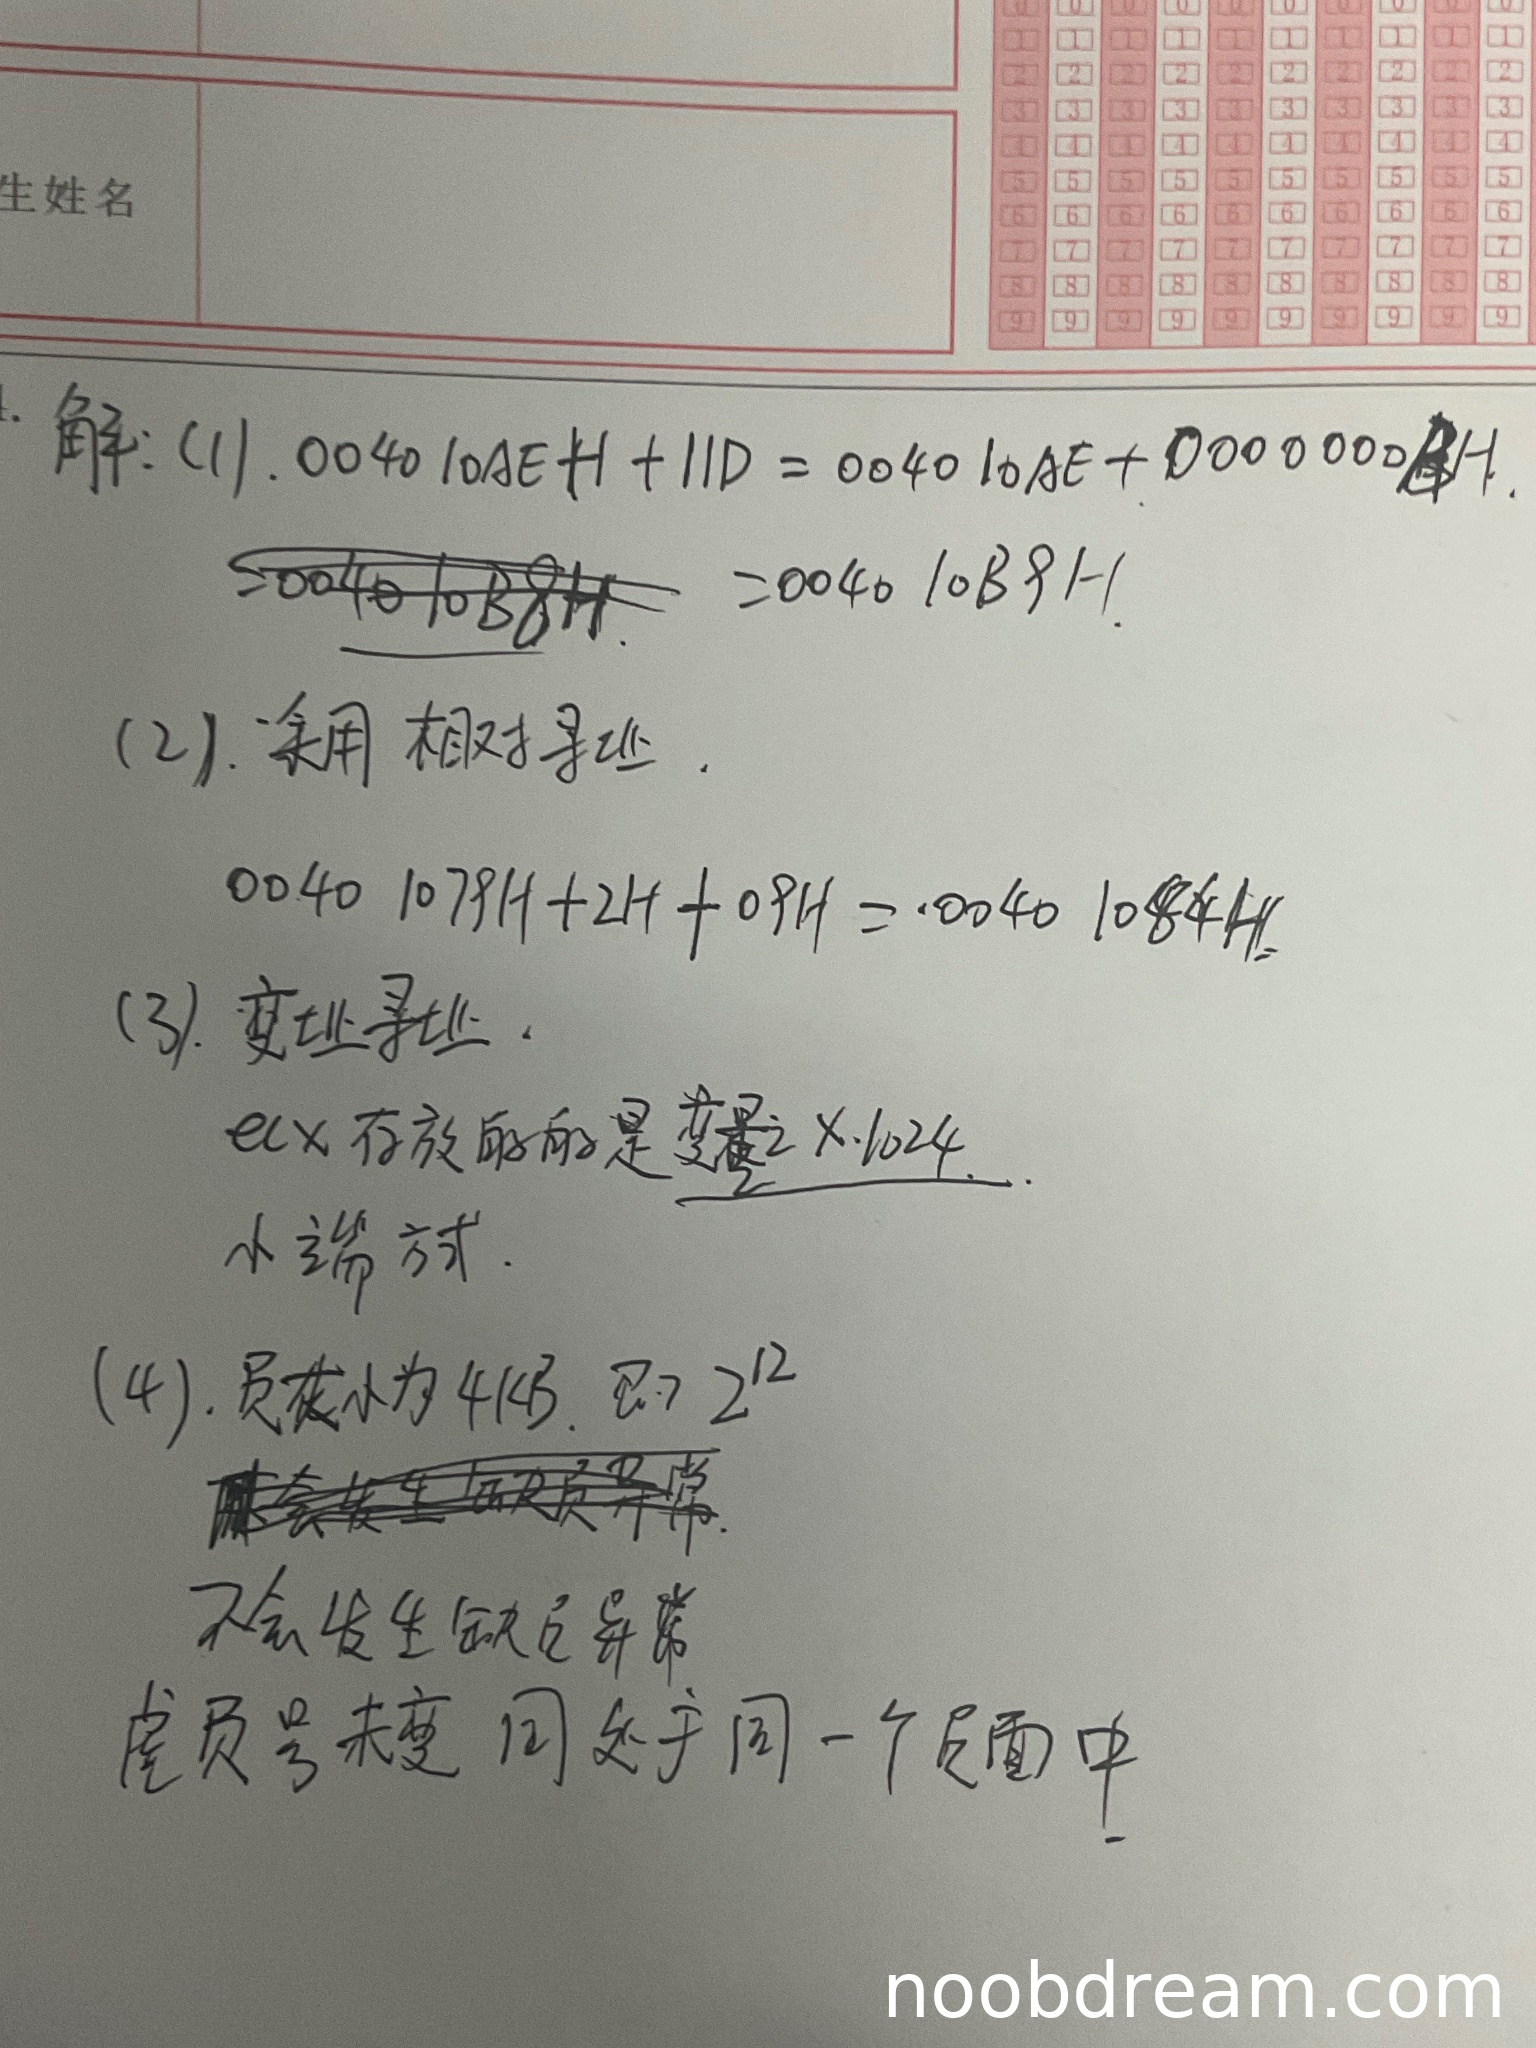 生姓名
0 0 0 0 0 0 0 0 0 0
1 1 1 1 1 1 1 1 1 1
2 2 2 2 2 2 2 2 2 2
3 3 3 3 3 3 3 3 3 3
4 4 4 4 4 4 4 4 4 4
5 5 5 5 5 5 5 5 5 5
6 6 6 6 6 6 6 6 6 6
7 7 7 7 7 7 7 7 7 7
8 8 8 8 8 8 8 8 8 8
9 9 9 9 9 9 9 9 9 9
解:(1). 0040 10AEH + 11D = 0040 10AE + 0000 000BH.
=0040 10B9H.
(2). 采用 相对寻址.
0040 1079H+2H+09H=0040 1084H
(3). 变址寻址.
ecx 存放的的是变量i×1024.
小端 方式.
(4). 页大小为4KB. 即 2^12
不会发生缺页异常
虚页号未变 同处于同一个页面中
noobdream.com